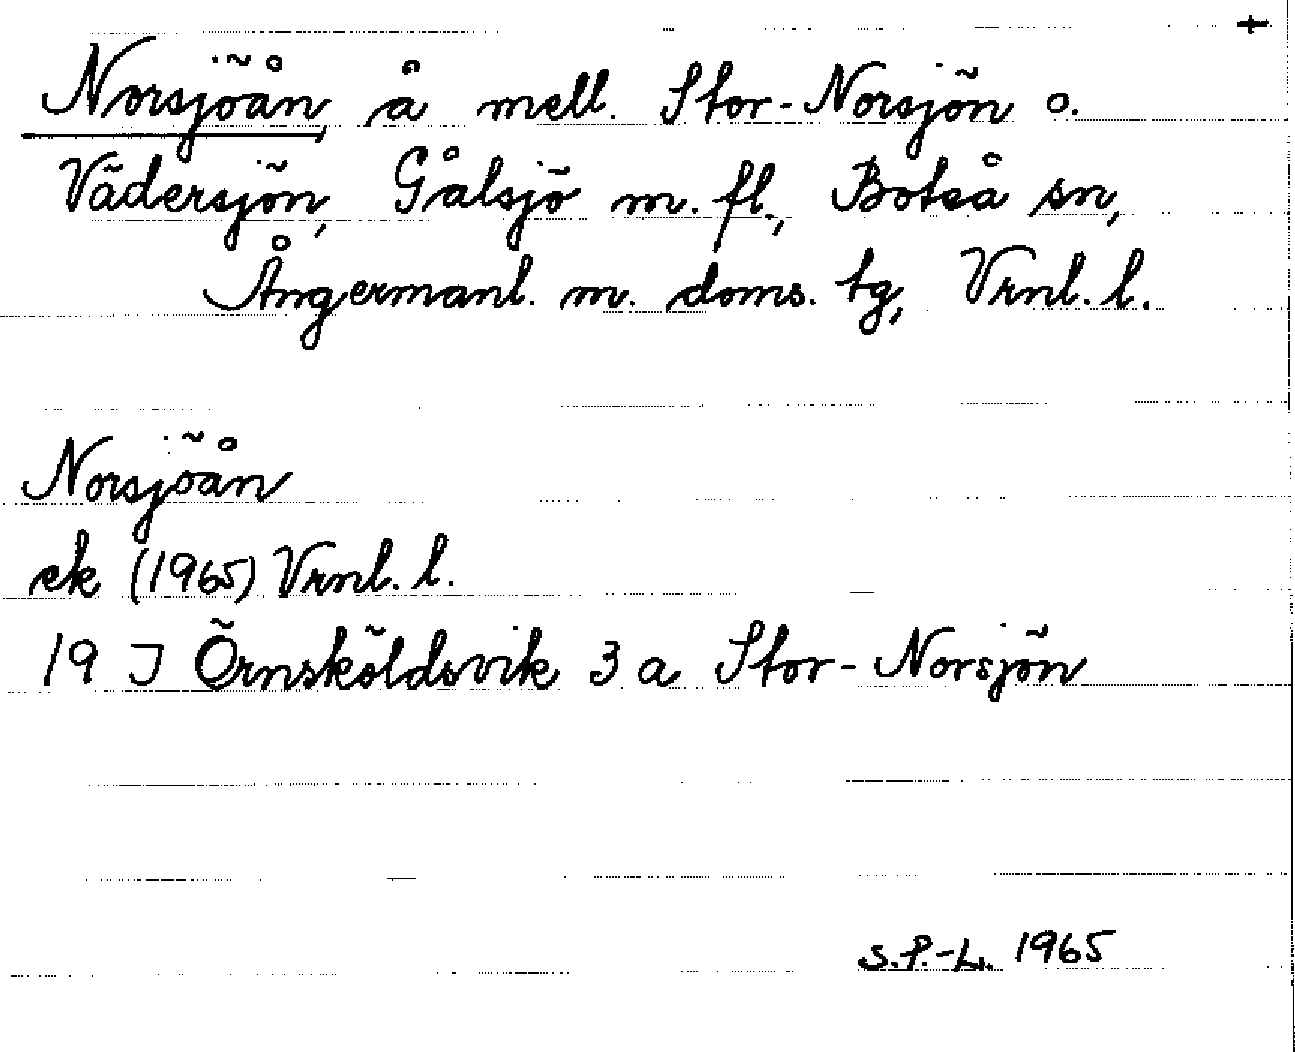 +
Norsjöån, å mell. Stor-Norsjön o.
Vädersjön, Gålsjö m. fl., Boteå sn,
Ångermanl. m. doms. tg, Vrnl. l.
Norsjöån
ek (1965) Vrnl. l.
19 J Örnsköldsvik 3 a Stor-Norsjön
S.P.-L. 1965